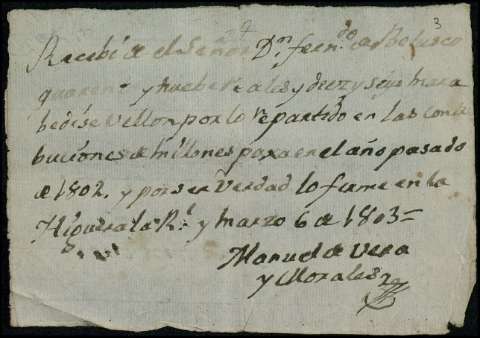 3
Recebi de el Señor Dn. Fern.do
quaren.ta y nuebe Reales y diez y seys mara
bedis de Vellon por lo repartido en las contri
buciones de millones para en el año pasado
de 1802. y por ser Verdad lo firme en la
Higuera la R.l y marzo 6 de 1803=
Manuel de Vera
y Morales